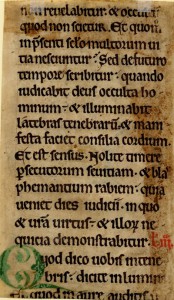 non revelabitur: & occultu
quod non scietur. Et quom
in p̃senti sclo multorum in
tia nesciuntur: Sed de futuro
tempore scribitur: quando
iudicabit deus occulta ho
minum: & illuminabit
latebras tenebrarũ: & mani
festa faciet consilia cordium.
Et est sensus. Nolite timere
p̱secutorum seuitiam: & bla
phemantium rabiem: quia
ueniet dies iudicii: in quo
& ur̃a uirtus: & illoꝝ ne
quicia demonstrabitur.
Quod dico uobis in tene
bris: dicite in lumin
& quod in aure auditis